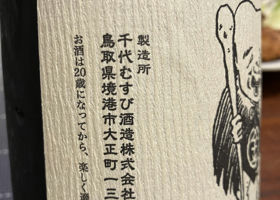 製造所
千代むすび酒造株式会
鳥取県境港市大正町一三
お酒は20歳になってから、楽しく適